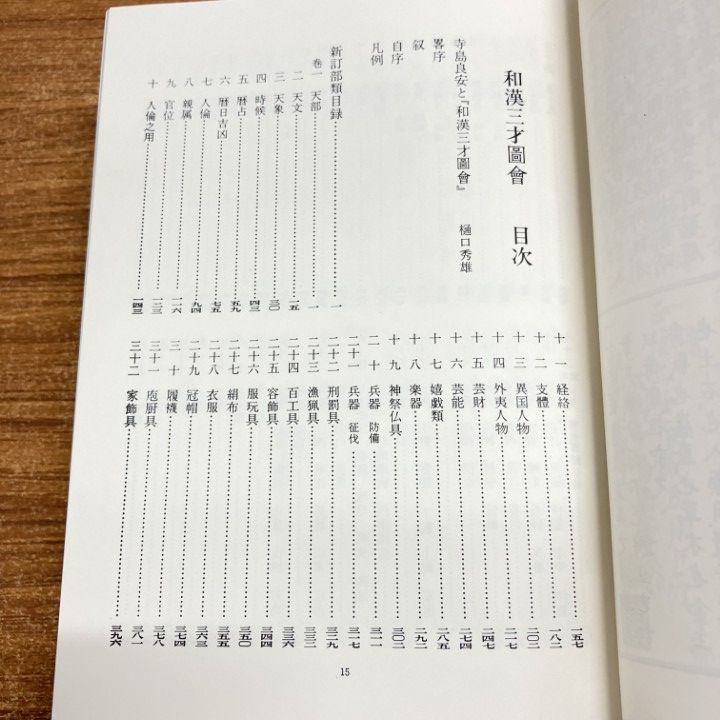 和漢三才圖會 目次
寺島良安と『和漢三才圖會』 樋口秀雄
畧序
叙
自序
凡例
新訂部類目録 一
巻一 天部 一
二 天文 一五
三 天象 三〇
四 時候 四三
五 暦占 五九
六 暦日吉凶 七五
七 人倫 九四
八 親属 一一六
九 官位 一三三
十 人倫之用 一四三
十一 経絡 一五七
十二 支體 一八二
十三 異国人物 二〇二
十四 外夷人物 二一七
十五 芸財 二四七
十六 芸能 二七四
十七 嬉戯類 二八五
十八 楽器 二九二
十九 神祭仏具 三〇二
二十 兵器 防備 三一一
二十一 兵器 征伐 三一七
二十二 刑罰具 三二九
二十三 漁猟具 三三三
二十四 百工具 三三六
二十五 容飾具 三四四
二十六 服玩具 三五〇
二十七 絹布 三五五
二十八 衣服 三六三
二十九 冠帽 三七四
三十 履襪 三七八
三十一 庖厨具 三八一
三十二 家飾具 三九六
15